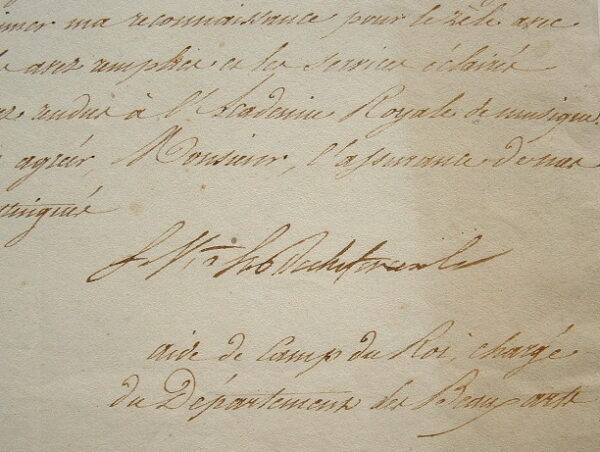 imer ma reconnaissance pour le zèle avec
s avez remplies et les services éclairés
ez rendus à l'Académie Royale de musique.
agréer, Monsieur, l'assurance de ma
stingués
le Vte de la Rochefoucauld
aide de Camp du Roi, chargé
du Département des Beaux-arts